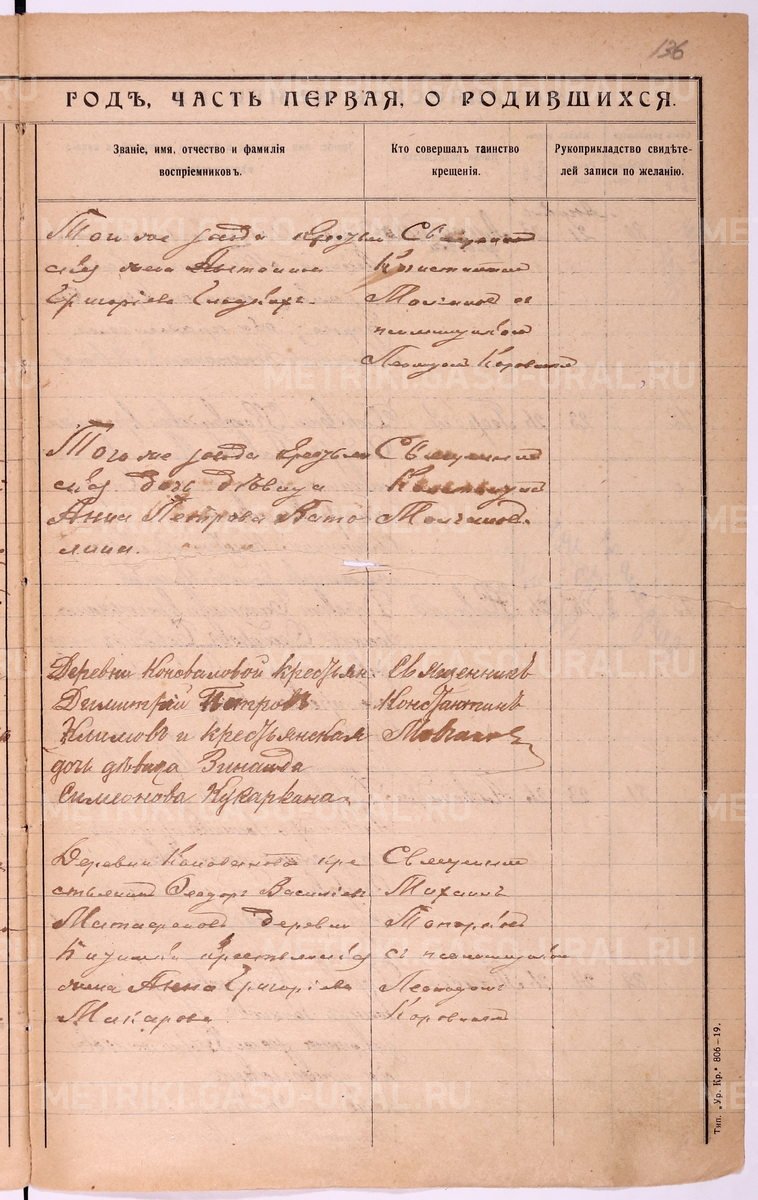 136
ГОДЪ, ЧАСТЬ ПЕРВАЯ, О РОДИВШИХСЯ.
Званіе, имя, отчество и фамилія
воспріемниковъ.
Кто совершалъ таинство
крещенія.
Рукоприкладство свидѣте-
лей записи по желанію.
Того же
жена
Григоріева
Священникъ
Константинъ
Молчановъ съ
псаломщикомъ
Леонидомъ
Того же
дочь дѣвица
Анна Петрова
Священникъ
Константинъ
Молчановъ.
Деревни Коноваловой крестьян.
Димитрій Петровъ
Климовъ и крестьянская
дочь дѣвица Зинаида
Симеонова Кукаркина
Священникъ
Константинъ
Молчановъ
Деревни Коновалово кре
стьянинъ Ѳеодоръ Василіевъ
деревни
жена Анна Григоріева
Макарова
Священникъ
Михаилъ
Топорковъ
съ псаломщикомъ
Леонидомъ
Тип. „Ур. Кр." 806—19.
METRIKI.GASO-URAL.RU